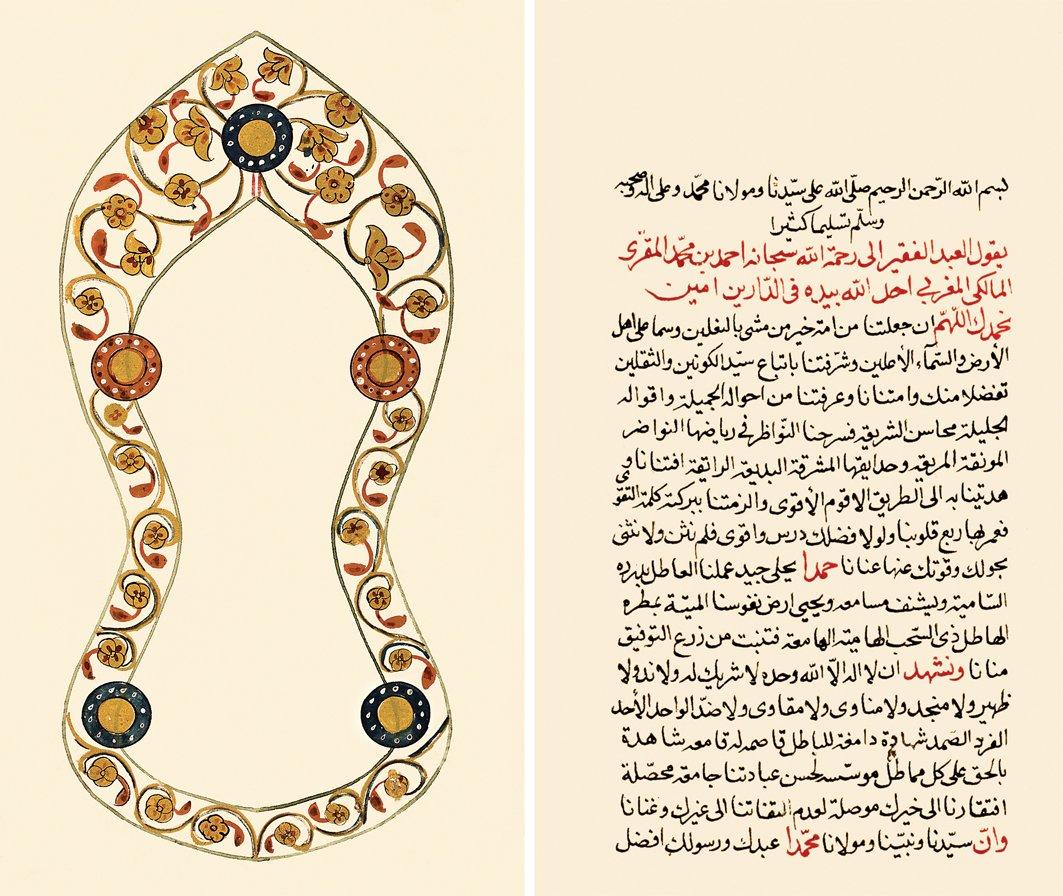 بسم الله الرحمن الرحيم صلى الله على سيدنا ومولانا محمد وعلى اله وصحبه
وسلم تسليما كثيرا
يقول العبد الفقير الى رحمة الله سبحانه احمد بن محمد المقرى
المالكى المغربي احل الله بيده فى الدارين امين
نحمدك اللهم ان جعلتنا من امة خير من مشى بالنعلين وسما على اهل
الأرض والسمآء الأعلين وشرفتنا باتباع سيد الكونين والثقلين
تفضلا منك وامتنانا وعرفتنا من احواله الجميلة واقواله
الجليلة محاسن الشريعة فسرحنا النواظر في رياضها النواضر
المونقة المريعة وحدايقها المشرقة البديعة الرايقة افتنانا و
هديتنا به الى الطريق الاقوم الأقوى والزمتنا ببركته كلمة التقوى
فعمر بها ربع قلوبنا ولولا فضلك درس واقوى فلم نثن ولا نثنى
بحولك وقوتك عنها عنانا حمدا يحلى جيد عملنا العاطل بدرره
السامية ويشنف مسامعه ويحيى ارض نفوسنا الميتة بمطره
الهاطل ذى السحب الهامية الهامعة فتنبت من زرع التوفيق
منانا ونشهد ان لا اله الا الله وحده لا شريك له ولا ند ولا
ظهير ولا منجد ولا مناوى ولا مقاوى ولا ضد الواحد الأحد
الفرد الصمد شهادة دامغة للباطل قاصمة له قامعة شاهدة
بالحق على كل مماطل موسسة لحسن عبادتنا جامعة محصلة
افتقارنا الى خيرك موصلة لعدم التفاتنا الى غيرك وغنانا
وان سيدنا ونبينا ومولانا محمدا عبدك ورسولك افضل